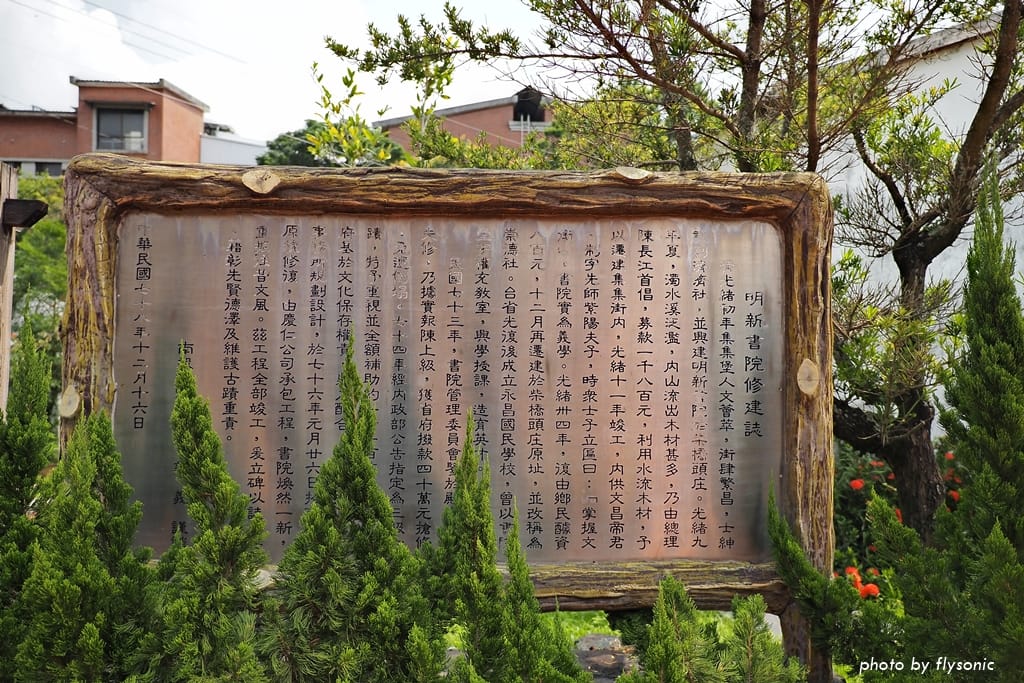 明新書院修建誌
緒初年集集堡人文薈萃,街肆繁昌,士紳
濟社,並興建明新 院 柴橋頭庄。光緒九
年夏,濁水溪泛濫,內山流出木材甚多,乃由總理
陳長江首倡,募款一千八百元,利用水流木材,予
以遷建集集街內,光緒十一年竣工,內供文昌帝君
制字先師紫陽夫子,時眾士子立匾曰:「掌握文
書院實為義學。光緒卅四年,復由鄉民醵資
八百元,十二月再遷建於柴橋頭庄原址,並改稱為
崇德社。台省光復後成立永昌國民學校,曾以
擴充教室,與學授課,造育英
民國七十三年,書院管理委員會鑒於
失修,乃據實報陳上級,獲省府撥款四十萬元搶修
七十四年經內政部公告指定為三級
蹟,特予重視並全額補助
府基於文化保存權責
規劃設計,於七十六年元月廿六日
原修復,由慶仁公司承包工程,書院煥然一新,
重振往昔文風。茲工程全部竣工,爰立碑以誌
彰先賢德澤及維護古蹟重責。
南投
謹
中華民國七十八年十二月十六日
photo by flysonic